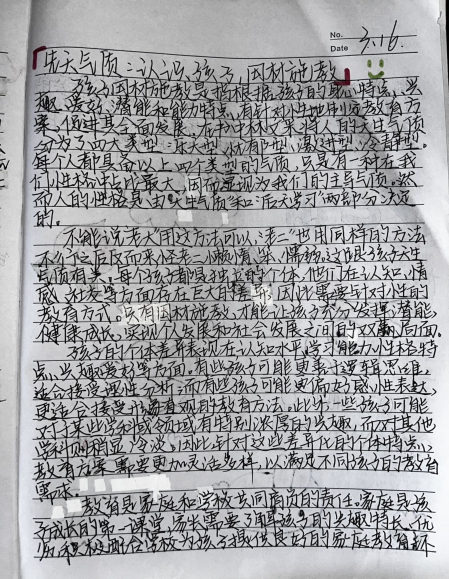 No.
Date 3.16.
「先天气质：认识孩子，因材施教」
孩子因材施教是指根据孩子的个性特点、兴
趣爱好、潜能和能力特点，有针对性地制定教育方
案，促进其全面发展。在书中林文采将人的先天气质
分为了四大类型：乐天型、忧郁型、激进型、冷静型。
每个人都具备以上四个类型的气质，只是有一种在我
们性格中占比最大，因而显现为我们的主导气质。然
而人的性格是由"先天气质"和"后天学习"两部分决定
的。
不能说"老大"用这方法可以，"老二"也用同样的方法
不行之后反而来怪老二懒惰、笨、懦弱，这跟孩子天生
气质有关，每个孩子都是独立的个体，他们在认知、情
感、社交等方面存在巨大的差异，因此需要针对性的
教育方式，只有因材施教，才能让孩子充分发挥潜能，
健康成长，实现个人发展和社会发展之间的双赢局面。
孩子的个体差异表现在认知水平、学习能力、性格特
点、兴趣爱好等方面。有些孩子可能更善于逻辑思维，
适合接受理性分析，而有些孩子可能更偏好感性表达，
更适合接受形象直观的教育方法。此外一些孩子可能
对于某些学科或领域有特别浓厚的兴趣，而对其他
学科则稍显冷淡，因此，针对这些差异化的个体特点，
教育方案需要更加灵活多样，以满足不同孩子的教育
需求。
教育是家庭和学校共同肩负的责任。家庭是孩
子成长的第一课堂，家长需要了解孩子的兴趣特长、优
积极配合学校为孩子提供良好的家庭教育环